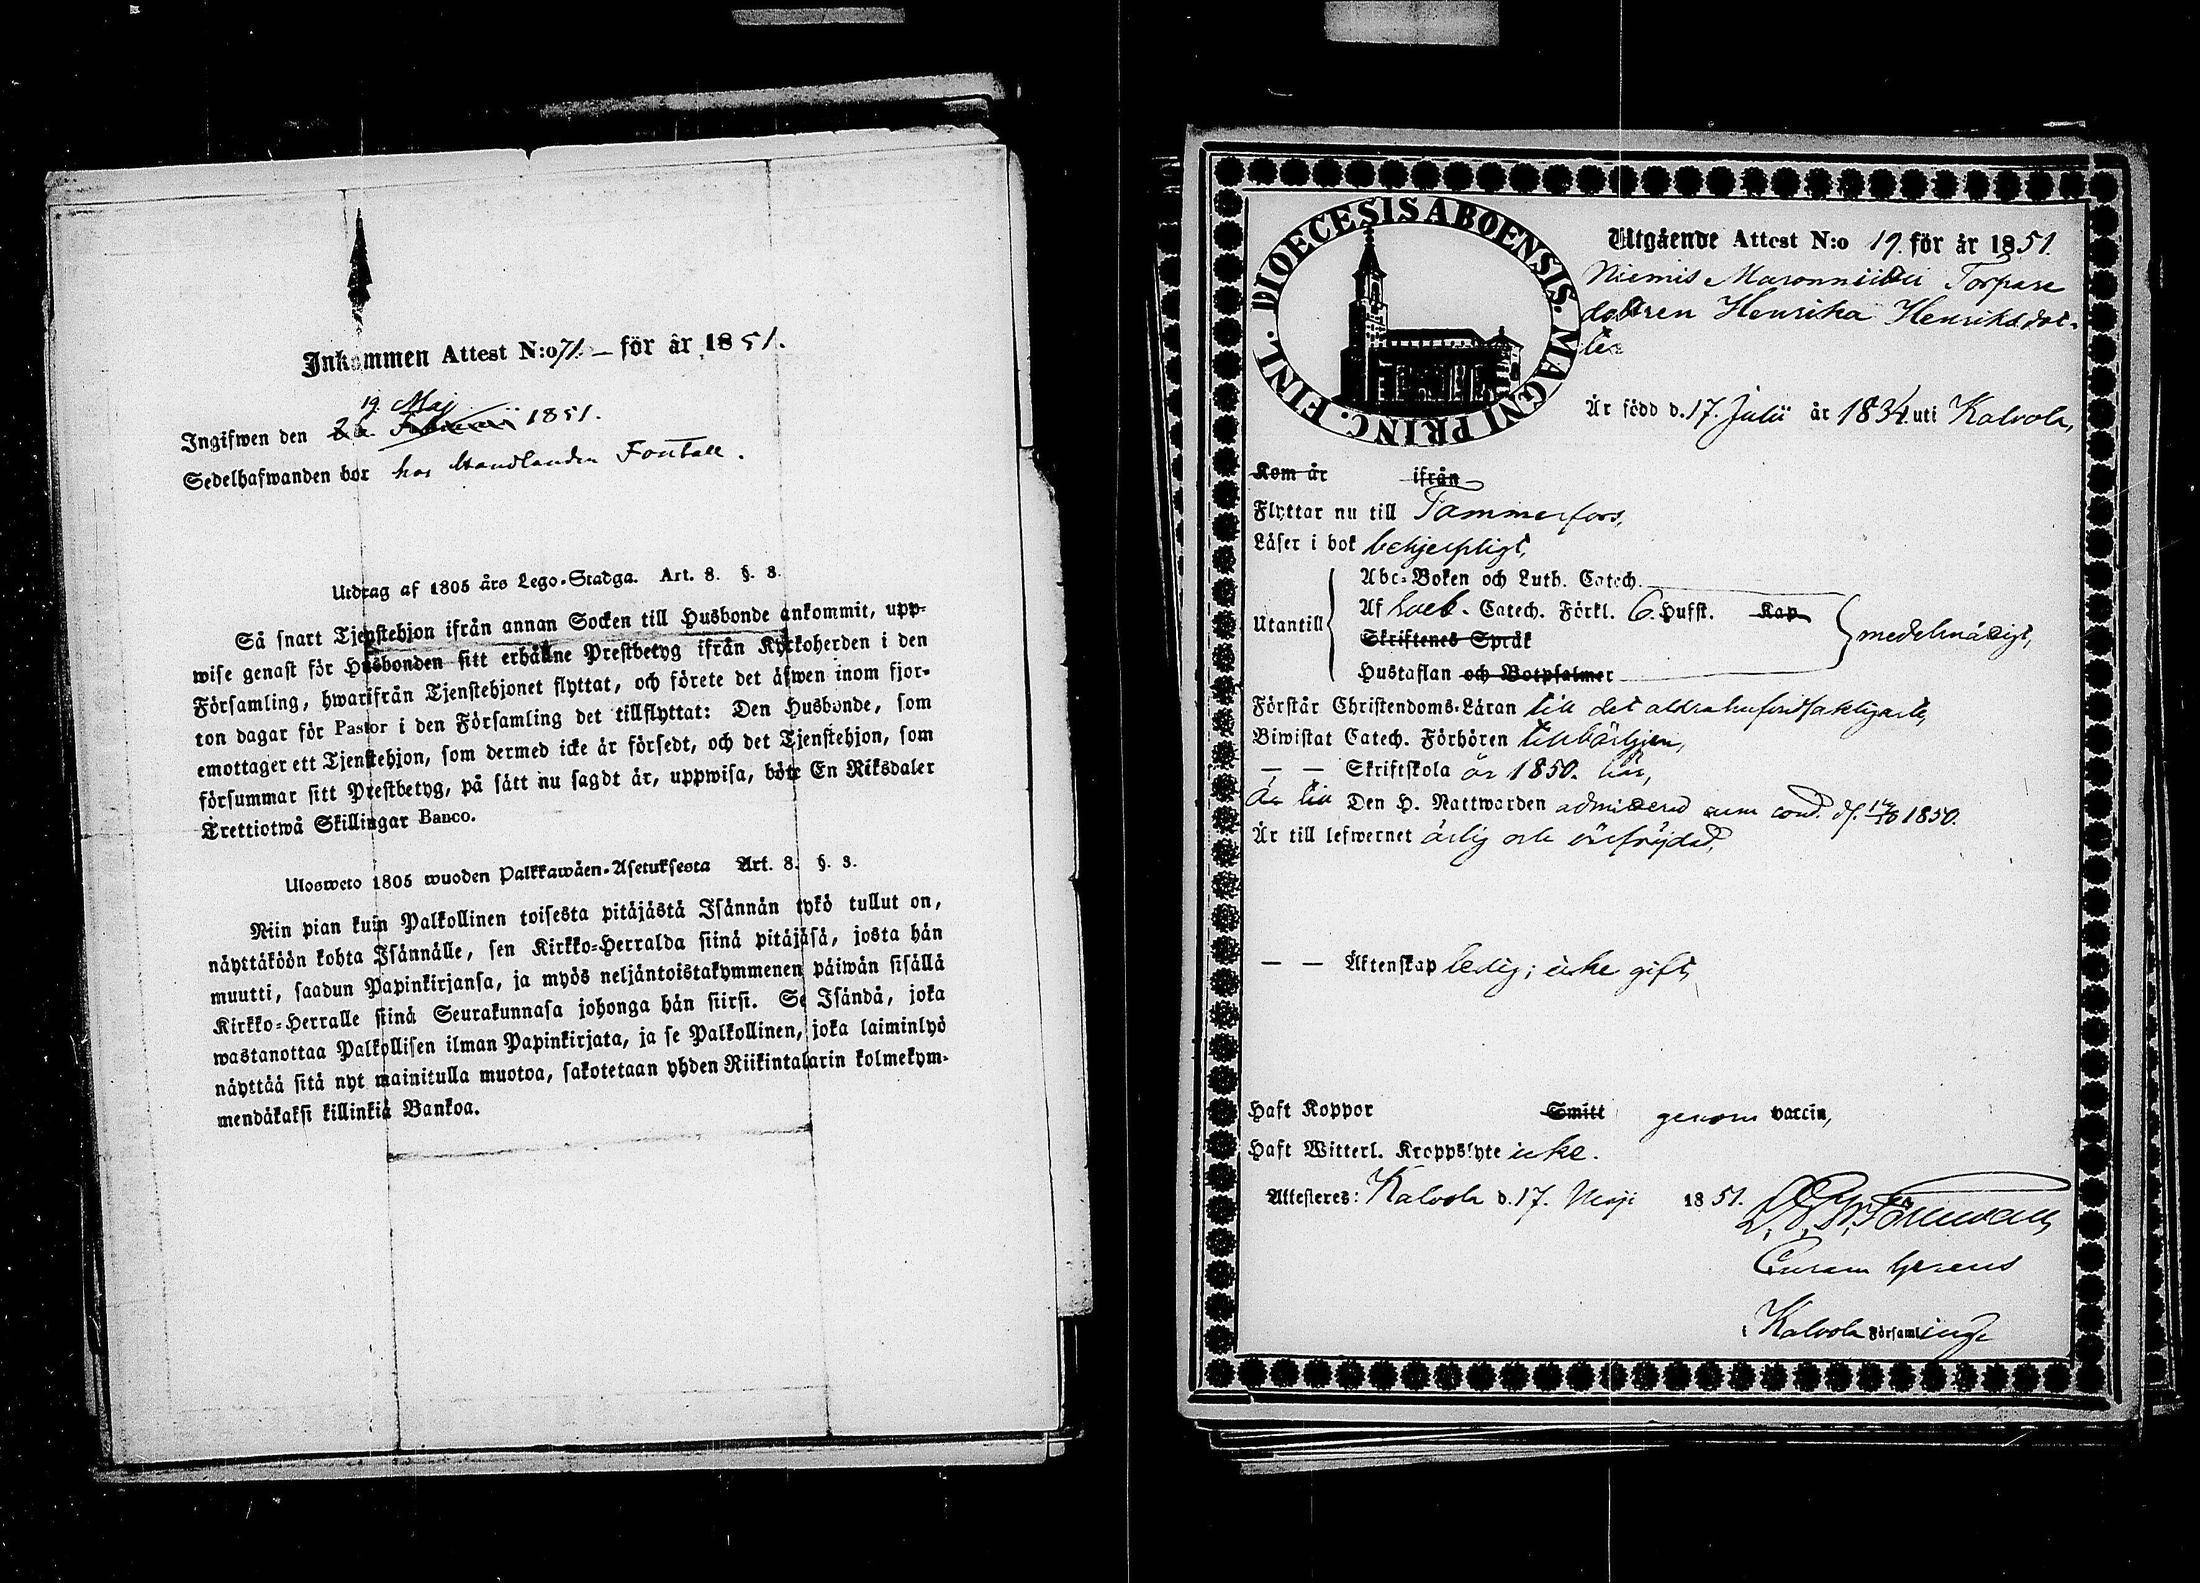 Inkommen Attest N:o 71. – för år 1851.
19. Maj
Ingifwen den 26. Februarii 1851.
Sedelhafwanden bor hos Handlanden
Utdrag af 1805 års Lego-Stadga. Art. 8. §. 3.
Så snart Tjenstehjon ifrån annan Socken till Husbonde ankommit, upp-
wise genast för Husbonden sitt erhållne Prestbetyg ifrån Kyrkoherden i den
Församling, hwarifrån Tjenstehjonet flyttat, och förete det äfwen inom fjor-
ton dagar för Pastor i den Församling det tillflyttat: Den Husbonde, som
emottager ett Tjenstehjon, som dermed icke är försedt, och det Tjenstehjon, som
försummar sitt Prestbetyg, på sätt nu sagdt är, uppwisa, böte En Riksdaler
Trettiotwå Skillingar Banco.
Ulosweto 1805 wuoden Palkkawäen-Asetuksesta Art. 8. §. 3.
Niin pian kuin Palkollinen toisesta pitäjästä Isännän tykö tullut on,
näyttäköön kohta Isännälle, sen Kirkko-Herralda siinä pitäjäsä, josta hän
muutti, saadun Papinkirjansa, ja myös neljäntoistakymmenen päiwän sisällä
Kirkko-Herralle siinä Seurakunnasa johonga hän siirsi. Se Isändä, joka
wastanottaa Palkollisen ilman Papinkirjata, ja se Palkollinen, joka laiminlyö
näyttää sitä nyt mainitulla muotoa, sakotetaan yhden Riikintalarin kolmekym-
mendäkaksi killinkiä Bankoa.
DIOECESIS ABOENSIS. MAGNI PRINC. FINL.
Utgående Attest N:o 19. för år 1851.
Niemis Torpare
dottren Henrika Henriksdot-
ter
Är född d. 17. Julii år 1834. uti Kalvola,
Kom år ifrån
Flyttar nu till Tammerfors,
Läser i bok behjerpligt,
Abc-Boken och Luth. Catech.
Utantill Af Catech. Förkl. 6. Hufst. Kap medelmåttigt,
Skriftenes Språk
Hustaflan och Botpsalmer
Förstår Christendoms-Läran till det
Biwistat Catech. Förhören tillbörligen,
– – Skriftskola år 1850. här,
Är till Den H. Nattwarden admitterad 1850.
Är till lefwernet ärlig och
– – Äktenskap ledig; icke gift,
Haft Koppor Smitt genom vaccin,
Haft Witterl. Kroppslyte icke.
Attesteres: Kalvola d. 17. Maji 1851.
Curam Gerens
i Kalvola Församling